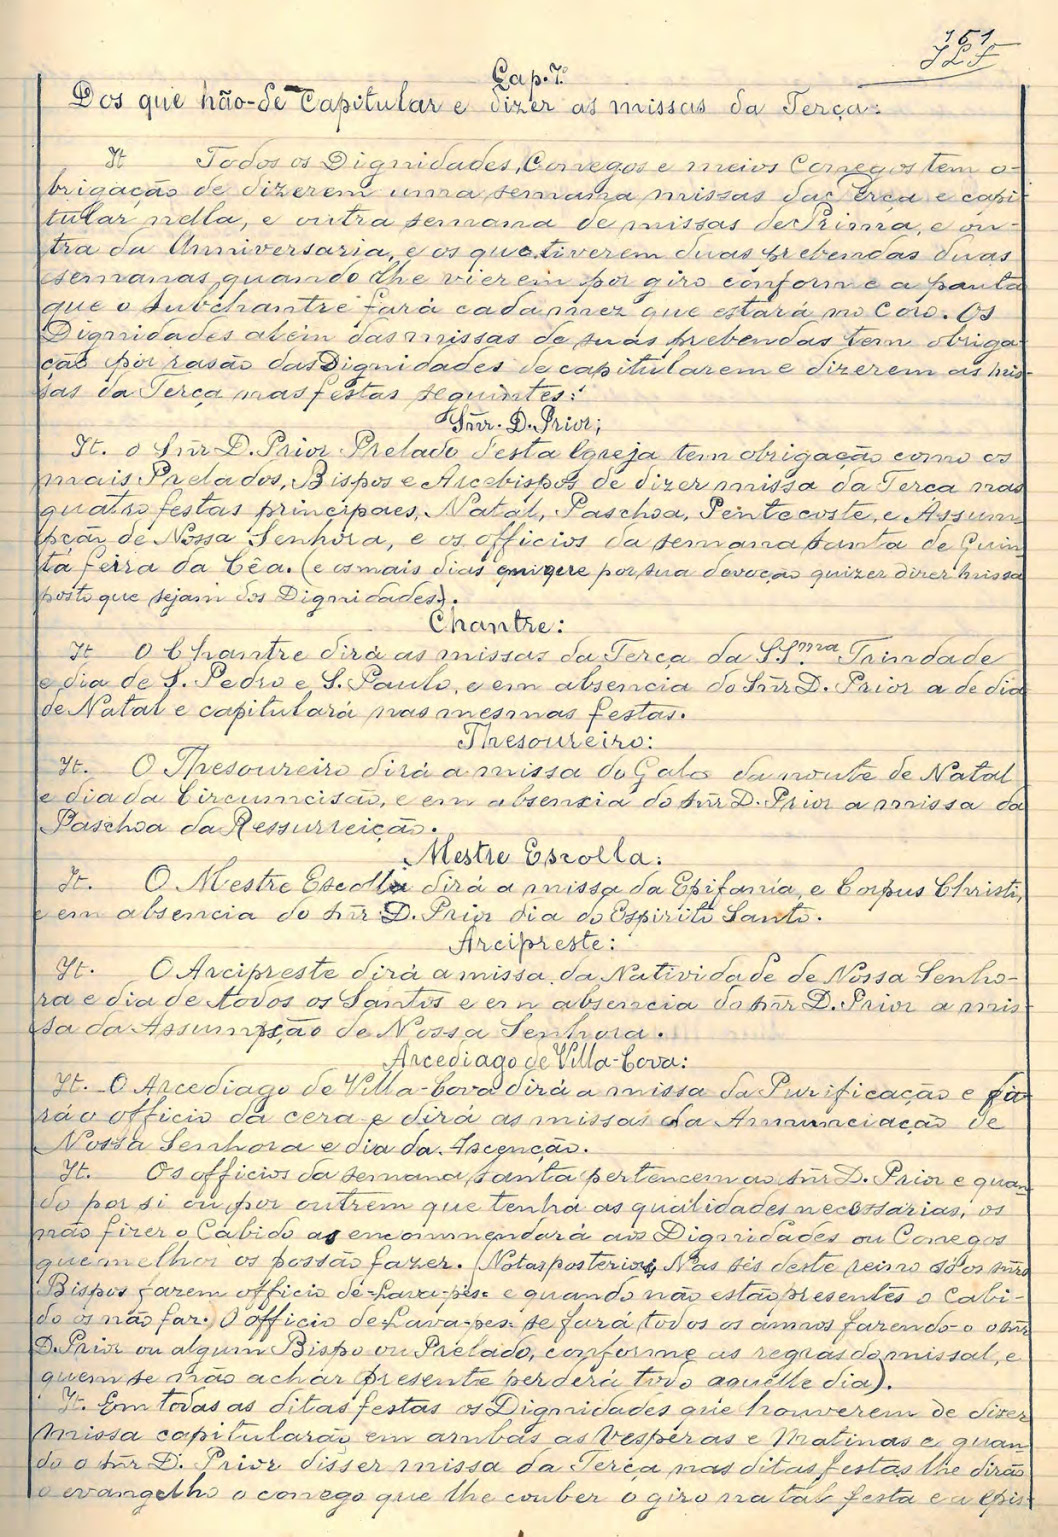 151
JLF
Cap. 7º
Dos que hão-de Capitular e dizer as missas da Terça:
It Todos os Dignidades, Conegos e meios Conegos tem o-
brigação de dizerem uma semana missas da Terça e capi-
tular nella, e outra semana de missas de Prima, e ou-
tra da Anniversaria, e os que tiverem duas prebendas duas
semanas quando lhe vierem por giro conforme a pauta
que o subchantre fará cada mez que estará no Coro. Os
Dignidades além das missas de suas prebendas tem obriga-
ção por rasão das Dignidades de capitularem e dizerem as mis-
sas da Terça nas festas seguintes:
Snr. D. Prior;
It. o Snr D. Prior Prelado desta Igreja tem obrigação como os
mais Prelados, Bispos e Arcebispos de dizer missa da Terça nas
quatro festas principaes, Natal, Paschoa, Pentecoste, e Assum-
pção de Nossa Senhora, e os officios da semana santa de Quin-
ta feira da Cêa. (e os mais dias que por sua devoção quizer dizer missa
posto que sejam dos Dignidades).
Chantre:
It O Chantre dirá as missas da Terça da SS.ma Trindade
e dia de S. Pedro e S. Paulo, e em absencia do Snr D. Prior a de dia
de Natal e capitulará nas mesmas festas.
Thesoureiro:
It. O Thesoureiro dirá a missa do Galo da noute de Natal
e dia da Circumcisão, e em absencia do Snr D. Prior a missa da
Paschoa da Ressurreição.
Mestre Escolla:
It. O Mestre Escolla dirá a missa da Epifania, e Corpus Christi,
e em absencia do Snr D. Prior dia do Espirito Santo.
Arcipreste:
It. O Arcipreste dirá a missa da Natividade de Nossa Senho-
ra e dia de todos os Santos e em absencia do Snr D. Prior a mis-
sa da Assumpção de Nossa Senhora.
Arcediago de Villa-Cova:
It. O Arcediago de Villa-Cova dirá a missa da Purificação e fa-
rá o officio da cera e dirá as missas da Annunciação de
Nossa Senhora e dia da Ascenção.
It. Os officios da semana santa pertencem ao Snr D. Prior e quan-
do por si ou por outrem que tenha as qualidades necessarias, os
não fizer o Cabido as encommendará aos Dignidades ou Conegos
que melhor os possão fazer. (Notas posterior, Nas sés deste reino só os Snrs
Bispos fazem officio de Lava-pés e quando não estão presentes o Cabi-
do os não faz.) O officio de Lava-pes se fará todos os annos fazendo-o o Snr
D. Prior ou algum Bispo ou Prelado, conforme as regras do missal, e
quem se não achar presente perderá todo aquelle dia).
It. Em todas as ditas festas os Dignidades que houverem de dizer
missa capitularão em ambas as Vesperas e Matinas e quan-
do o Snr D. Prior disser missa da Terça nas ditas festas lhe dirão
o evangelho o conego que lhe couber o giro na tal festa e a epis-